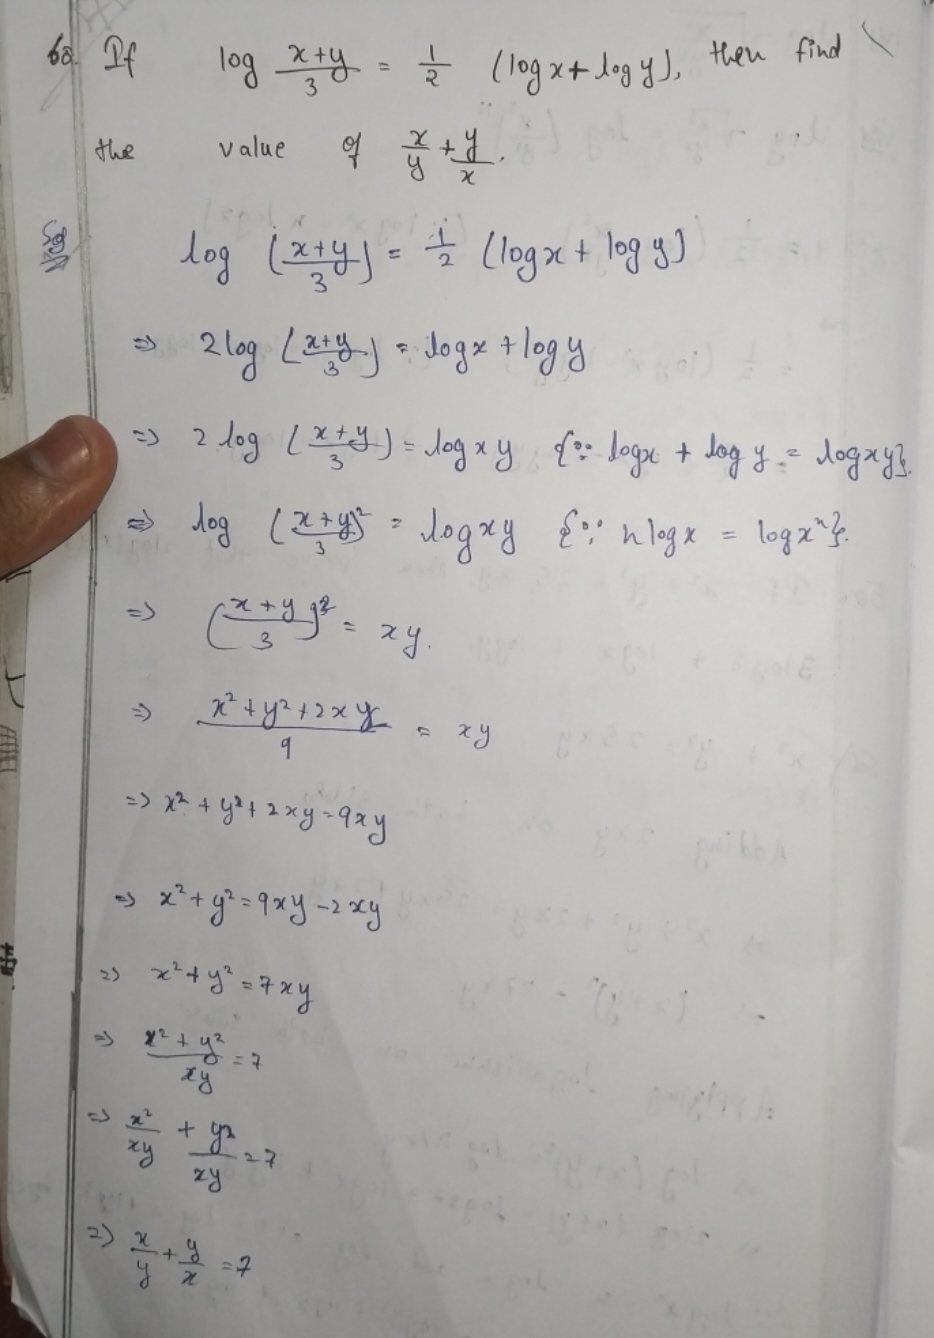 62. If log (x+y)/3 = 1/2 (log x + log y), then find
the value of x/y + y/x.
Sol log ((x+y)/3) = 1/2 (log x + log y)
=> 2 log ((x+y)/3) = log x + log y
=> 2 log ((x+y)/3) = log xy {∵ log x + log y = log xy}.
=> log ((x+y)/3)² = log xy {∵ n log x = log xⁿ}.
=> ((x+y)/3)² = xy.
=> (x² + y² + 2xy)/9 = xy
=> x² + y² + 2xy = 9xy
=> x² + y² = 9xy - 2xy
=> x² + y² = 7xy
=> (x² + y²)/xy = 7
=> x²/xy + y²/xy = 7
=> x/y + y/x = 7